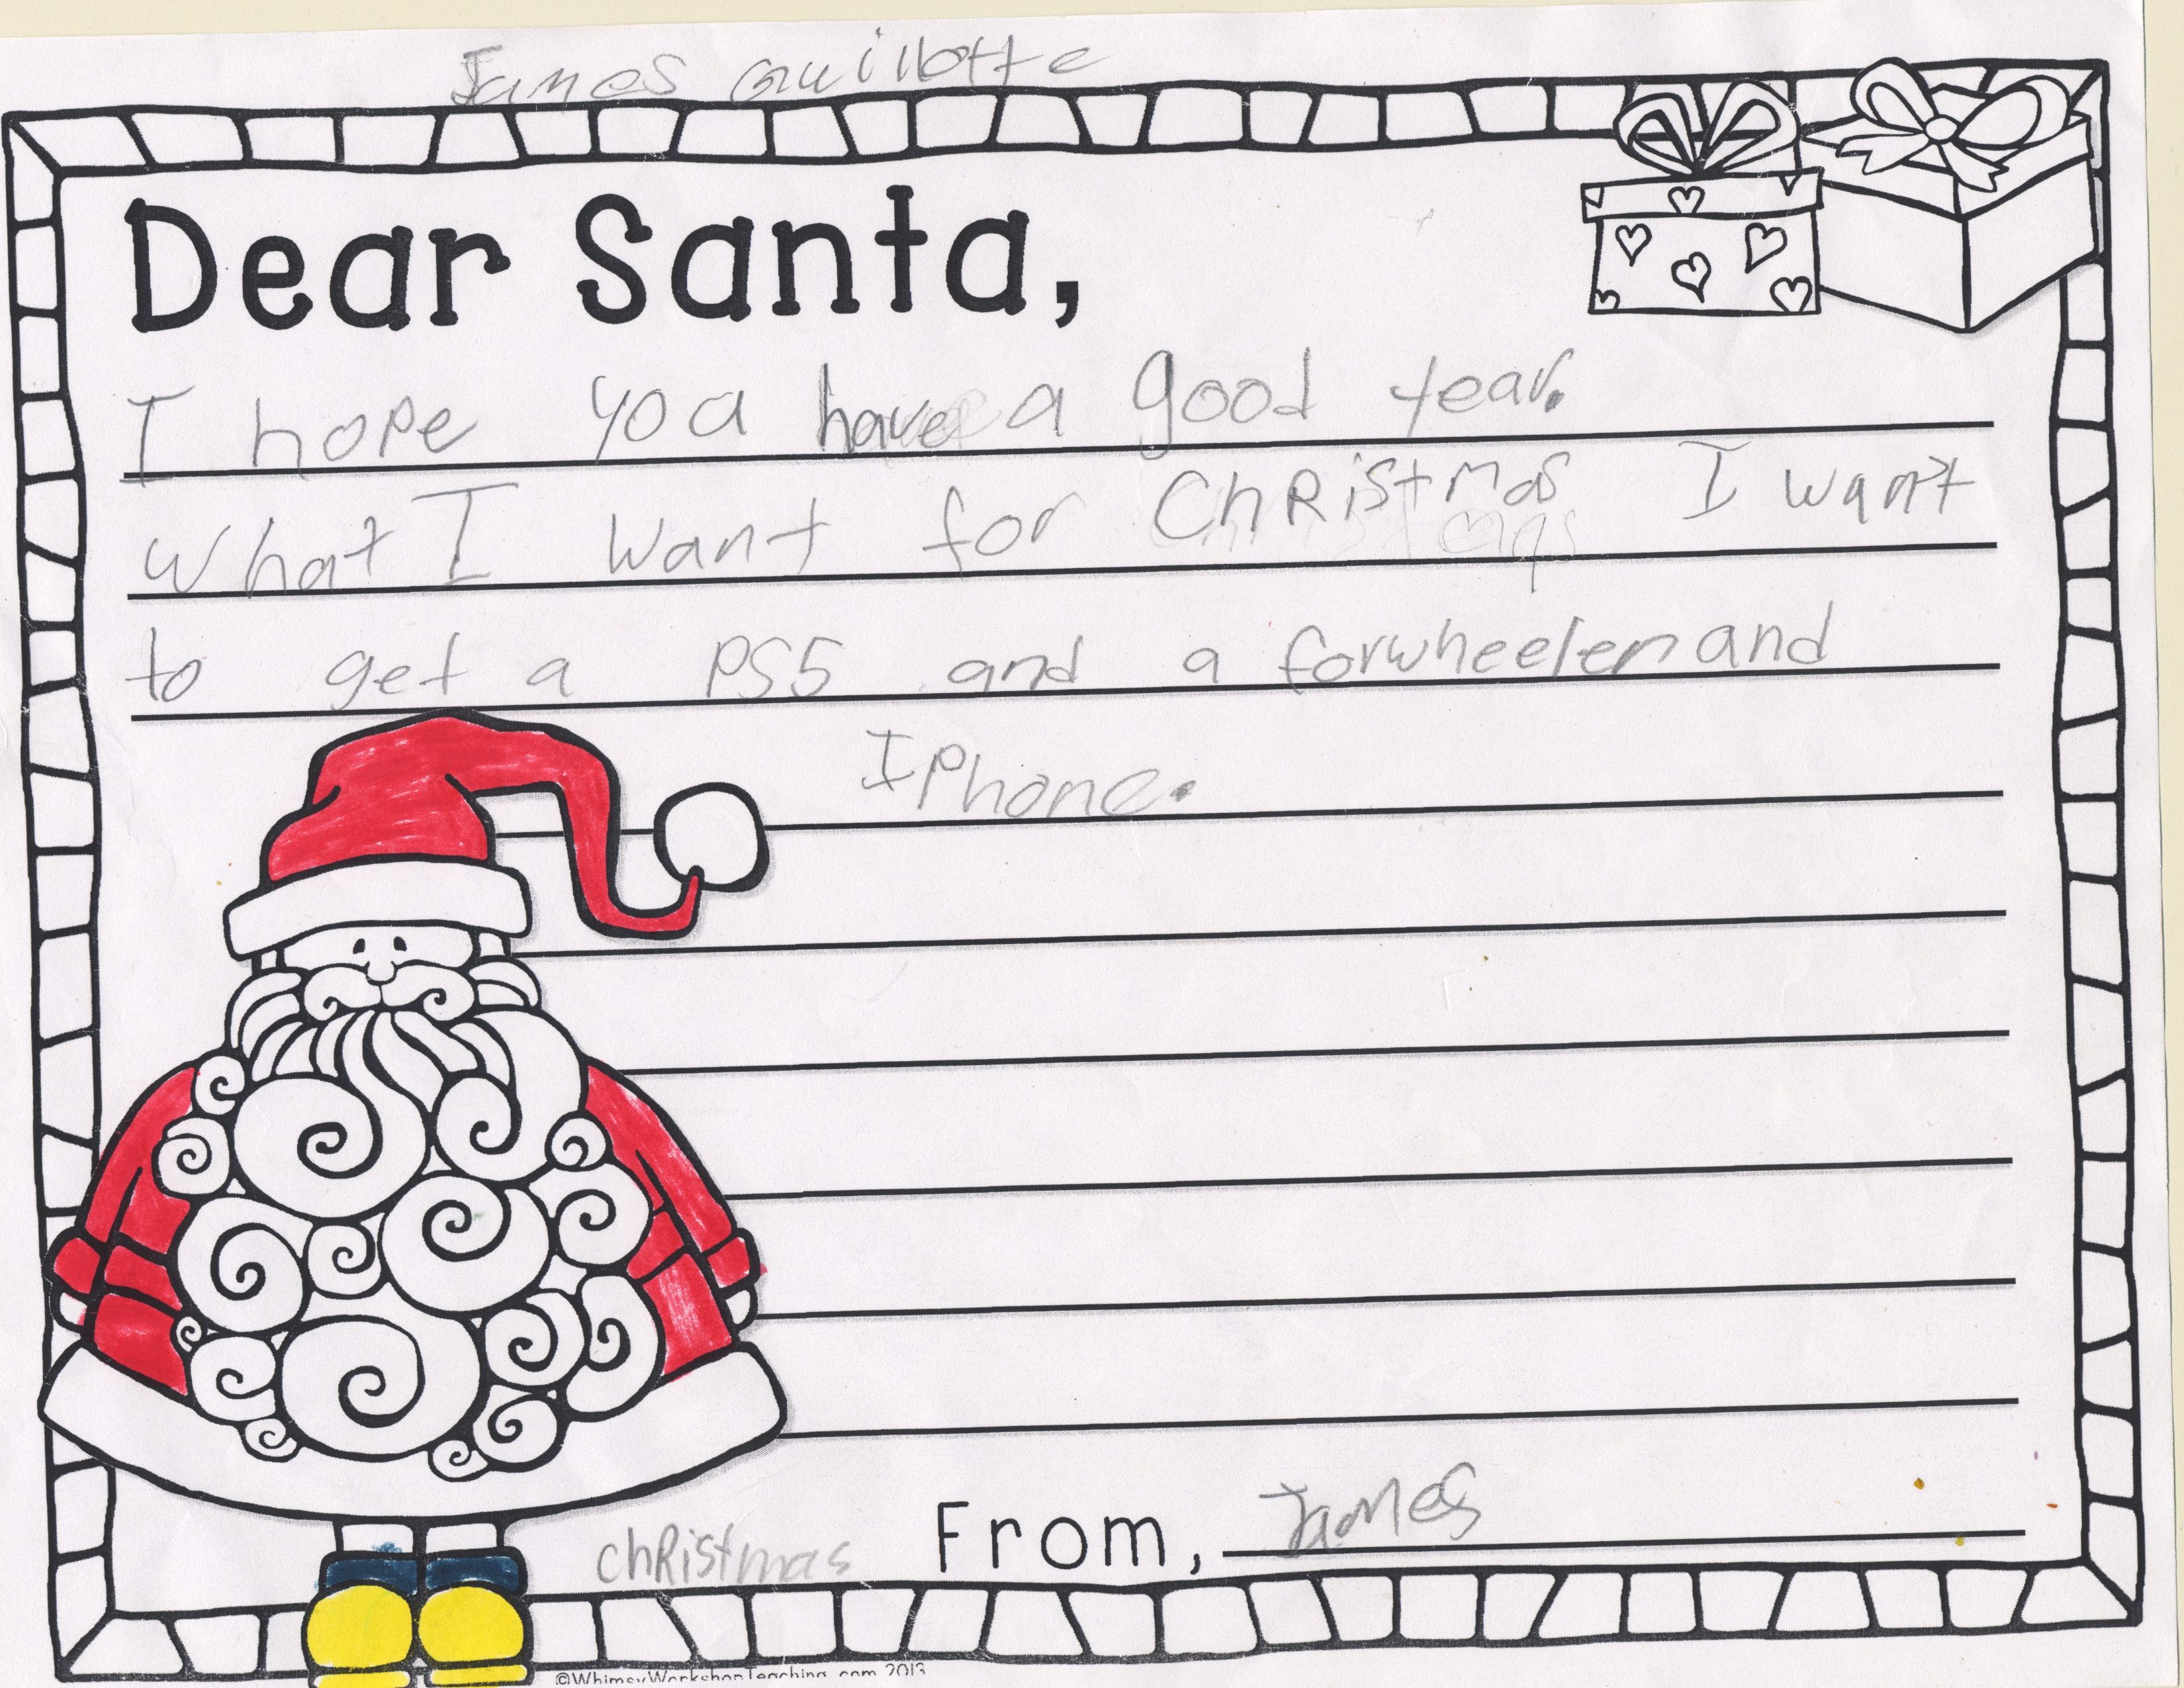 James Guillotte
Dear Santa,
I hope you have a good year.
what I want for ChRistmas I want
to get a PS5 and a forwheeler and
IPhone.
christmas From, James
©WhimsyWorkshopTeaching.com 2013